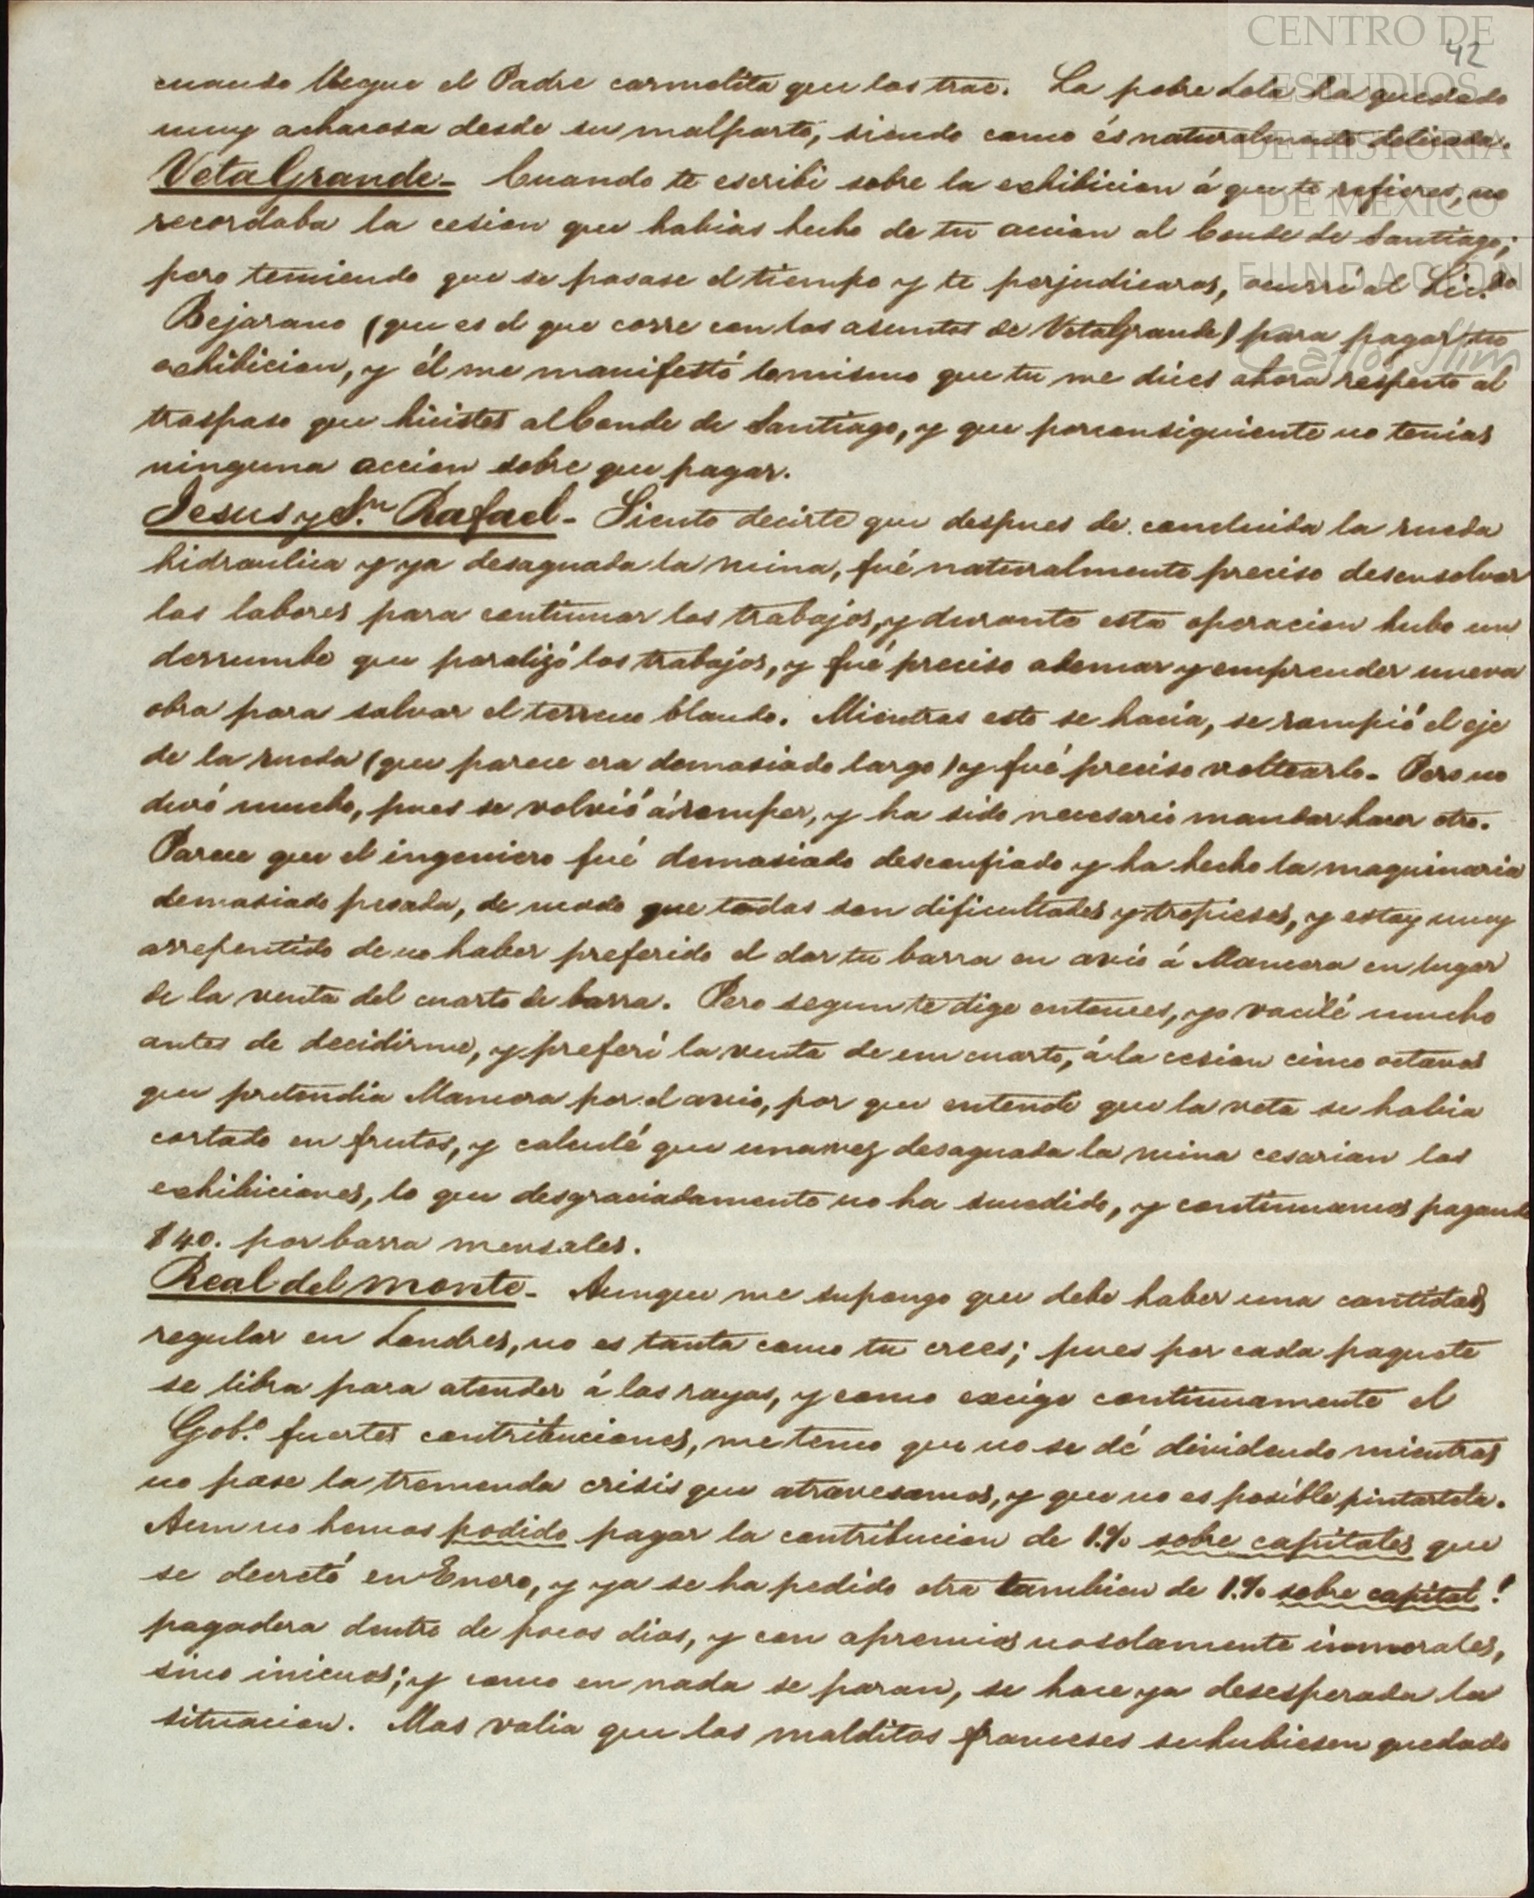 42
CENTRO DE
ESTUDIOS
DE HISTORIA
DE MEXICO
FUNDACIÓN
Carlos Slim
cuando llegue el Padre carmelita que los trae. La pobre Lola ha quedado
muy achacosa desde su malparto, siendo como és naturalmente delicada.
Veta Grande- Cuando te escribi sobre la exhibicion á que te refieres, no
recordaba la cesion que habias hecho de tu accion al Conde de Santiago;
pero temiendo que se pasase el tiempo y te perjudicaras, ocurri al Lic.do
Bejarano (que es el que corre con los asuntos de Veta Grande) para pagar tu
exhibicion, y él me manifestó lo mismo que tu me dices ahora respecto al
traspaso que hicistes al Conde de Santiago, y que por consiguiente no tenias
ninguna accion sobre que pagar.
Jesus y Sn. Rafael- Siento decirte que despues de concluida la rueda
hidraulica y ya desaguada la mina, fué naturalmente preciso desensolvar
las labores para continuar los trabajos, y durante esta operacion hubo un
derrumbe que paralizó los trabajos, y fué preciso ademar y emprender nueva
obra para salvar el terreno blando. Mientras esto se hacía, se rompió el eje
de la rueda (que parece era demasiado largo) y fué preciso voltearlo. Pero no
duró mucho, pues se volvió á romper, y ha sido necesario mandar hacer otro.
Parece que el ingeniero fué demasiado desconfiado y ha hecho la maquinaria
demasiado pesada, de modo que todas son dificultades y tropieses, y estoy muy
arrepentido de no haber preferido el dar tu barra en avio á Mancera en lugar
de la venta del cuarto de barra. Pero segun te dige entonces, yo vacilé mucho
antes de decidirme, y preferi la venta de un cuarto, á la cesion cinco octavos
que pretendia Mancera por el avio, por que entendi que la veta se habia
cortado en frutos, y calculé que una vez desaguada la mina cesarian las
exhibiciones, lo que desgraciadamente no ha sucedido, y continuamos pagando
$40. por barra mensales.
Real del monte- Aunque me supongo que debe haber una cantidad
regular en Londres, no es tanta como tu crees; pues por cada paquete
se libra para atender á las rayas, y como exige continuamente el
Gob.o fuertes contribuciones, me temo que no se dé dividendo mientras
no pase la tremenda crisis que atravesamos, y que no es posible pintartela.
Aun no hemos podido pagar la contribucion de 1.% sobre capitales que
se decretó en Enero, y ya se ha pedido otra tambien de 1.% sobre capital!
pagadera dentro de pocos dias, y con apremios no solamente inmorales,
sino inicuos; y como en nada se paran, se hace ya desesperada la
situacion. Mas valia que los malditos franceses se hubiesen quedado